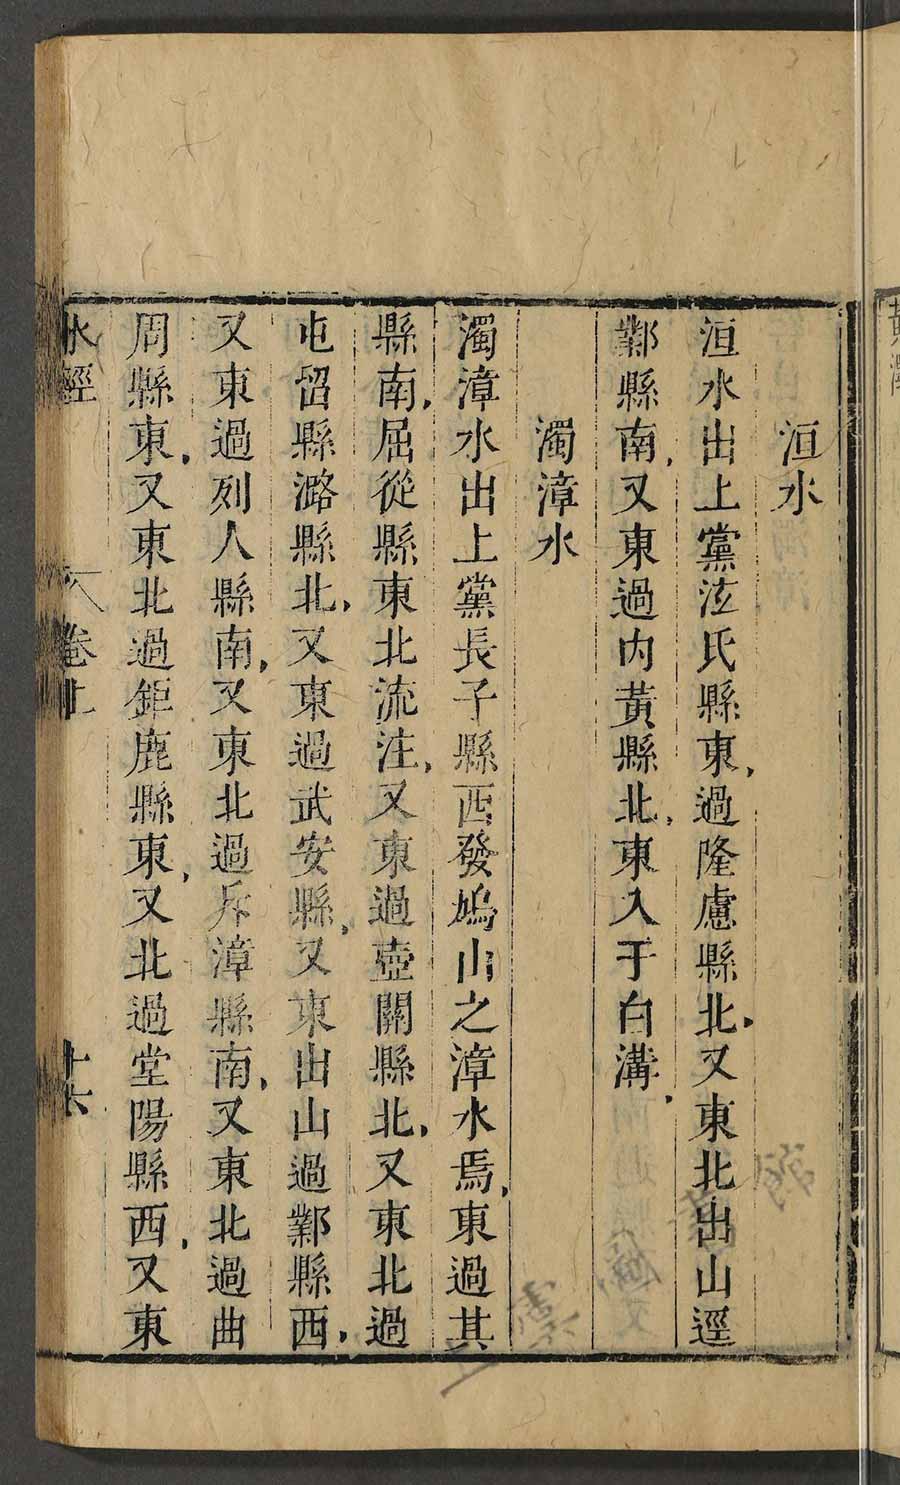 洹水
洹水出上黨泫氏縣東,過隆慮縣北,又東北出山逕
鄴縣南,又東過内黃縣北,東入于白溝,
濁漳水
濁漳水出上黨長子縣西發鳩山之漳水焉,東過其
縣南,屈從縣東北流注,又東過壺關縣北,又東北過
屯留縣潞縣北,又東過武安縣,又東出山過鄴縣西,
又東過列人縣南,又東北過斥漳縣南,又東北過曲
周縣東,又東北過鉅鹿縣東,又北過堂陽縣西,又東
水經
卷上
十六